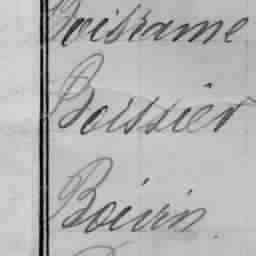 Boisrame
Boissier
Boivin